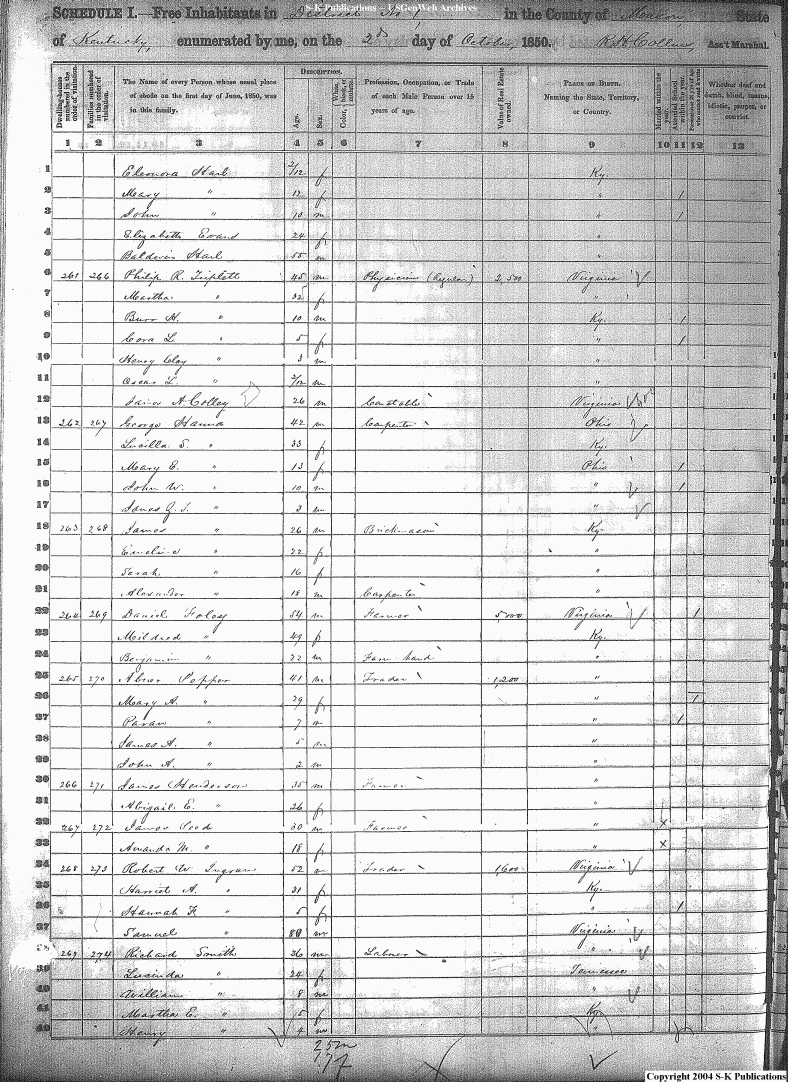 S-K Publications – USGenWeb Archives
SCHEDULE I.—Free Inhabitants in District No 1 in the County of State
of Kentucky enumerated by me, on the 2d day of October, 1850. R. H. Collins, Ass't Marshal.
Dwelling-houses numbered in the order of visitation. Families numbered in the order of visitation. The Name of every Person whose usual place of abode on the first day of June, 1850, was in this family. DESCRIPTION. Age. Sex. Color, White, black, or mulatto. Profession, Occupation, or Trade of each Male Person over 15 years of age. Value of Real Estate owned. PLACE OF BIRTH. Naming the State, Territory, or Country. Married within the year. Attended School within the year. Whether deaf and dumb, blind, insane, idiotic, pauper, or convict.
1 2 3 4 5 6 7 8 9 10 11 12 13
1 Eleonora Hail 2/12 f Ky.
2 Mary " 12 f " 1
3 John " 10 m " 1
4 Elizabeth Evans 24 f "
5 Baldwin Hail 55 m "
6 261 266 Philip R. Triplett 45 m Physician (Regular) 2,500 Virginia
7 Martha " 32 f "
8 Burr H. " 10 m Ky. 1
9 Cora L. " 5 f " 1
10 Henry Clay " 3 m "
11 Oscar L. " 2/12 m "
12 A Colley 26 m Constable Virginia
13 262 267 George Hanna 42 m Carpenter Ohio
14 Lucilla S. " 33 f Ky.
15 Mary E. " 13 f Ohio 1
16 John W. " 10 m " 1
17 James " 3 m "
18 263 268 James " 26 m Brickmason Ky.
19 Emeline " 22 f "
20 Sarah " 16 f "
21 Alexander " 18 m Carpenter "
22 264 269 Daniel Foley 54 m Farmer 5,000 Virginia 1
23 Mildred " 49 f Ky.
24 Benjamin " 22 m Farm hand "
25 265 270 Abner Pepper 41 m Trader 1,200 "
26 Mary A. " 29 f " 1
27 " 7 m " 1
28 James A. " 5 m "
29 John A. " 2 m "
30 266 271 James Henderson 35 m Farmer "
31 Abigail E. " 26 f "
32 267 272 James 30 m Farmer " x
33 Amanda M. " 18 f " x
34 268 273 Robert W Ingram 52 m Trader 1,600 Virginia
35 Harriet A. " 31 f Ky.
36 Hannah F. " 5 f " 1
37 Samuel " 80 m Virginia
38 269 274 Richard Smith 36 m Laborer "
39 Lucinda " 24 f Tennessee
40 William " 8 m "
41 Martha E. " 5 f Ky
42 Henry " 4 m "
25m
17f
Copyright 2004 S-K Publications